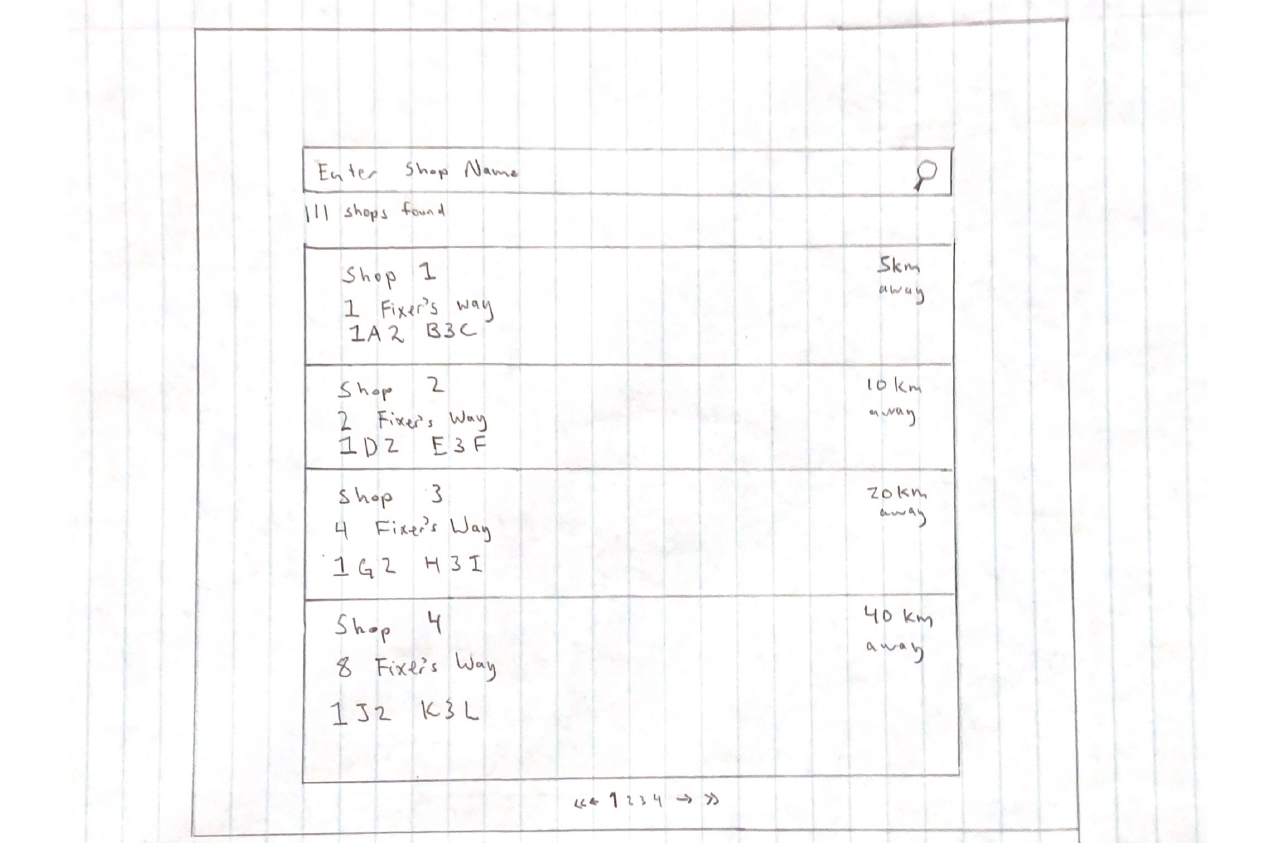 Enter Shop Name
111 shops found
Shop 1
1 Fixer's way
1A2 B3C
5km
away
Shop 2
2 Fixer's Way
1D2 E3F
10 km
away
Shop 3
4 Fixer's Way
1G2 H3I
20 km
away
Shop 4
8 Fixer's Way
1J2 K3L
40 km
away
<<← 1 2 3 4 → >>